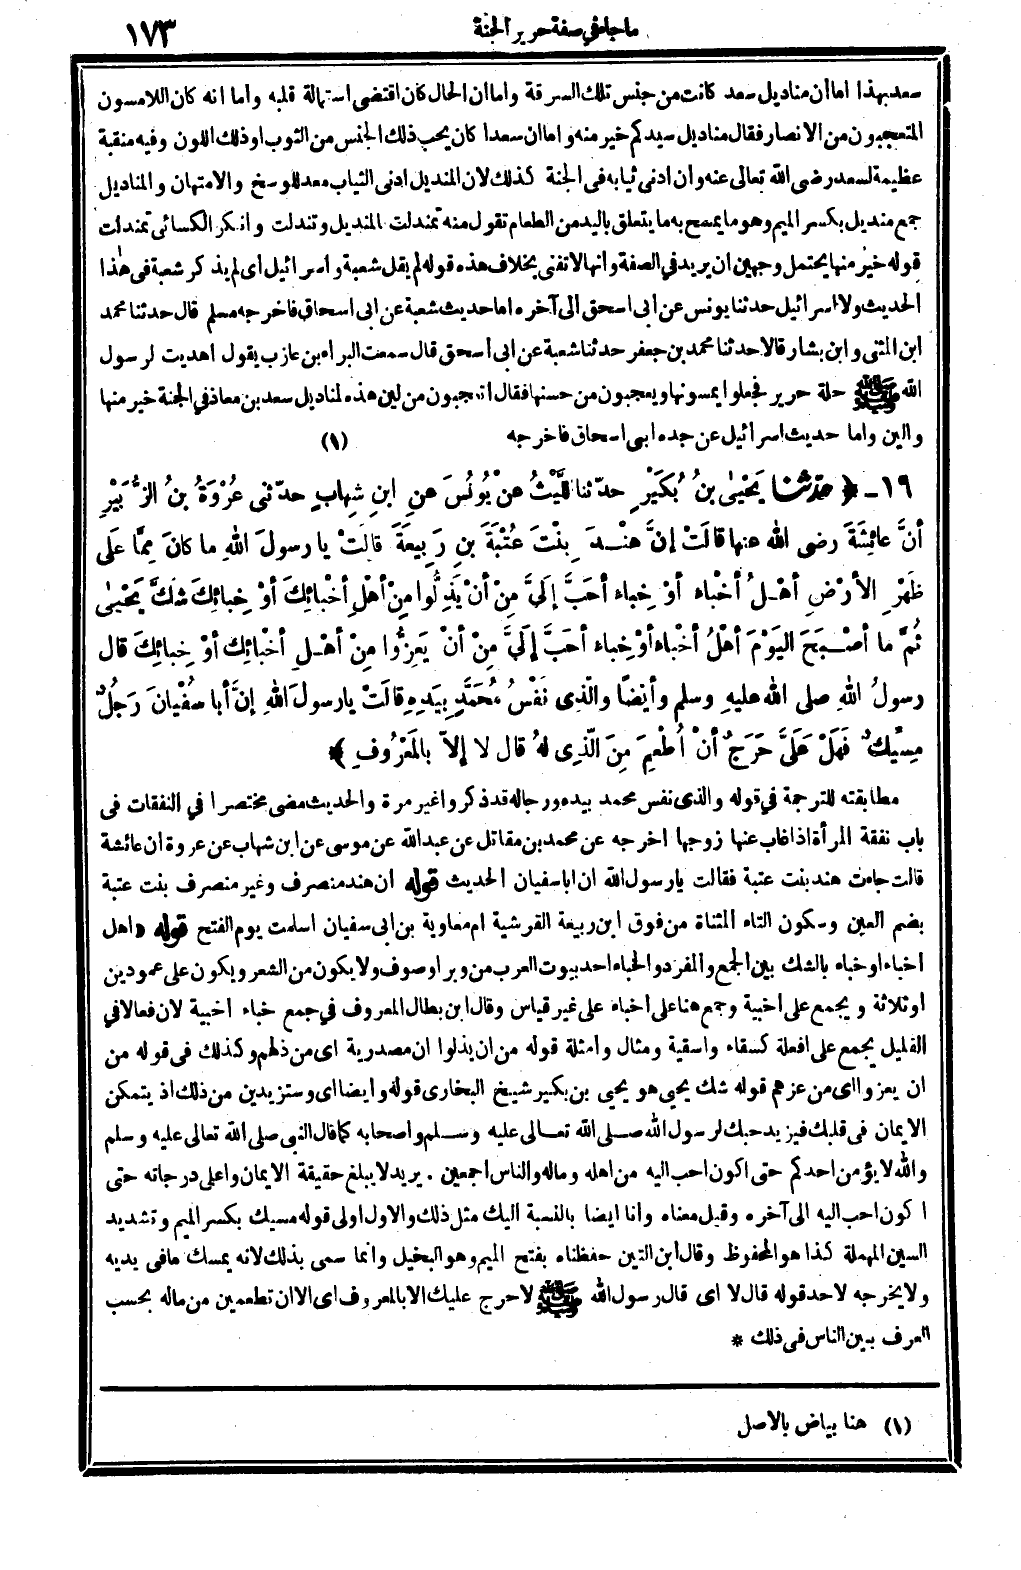 ما جاء في صفة حرير الجنة
١٧٣
سعد بهذا اما أن مناديل سعد كانت من جنس تلك السرقة واما ان الحال كان اقتضى استمالة قلبه واما انه كان اللامسون
المتعجبون من الانصار فقال مناديل سيدكم خير منه واما ان سعدا كان يحب ذلك الجنس من الثوب او ذلك اللون وفيه منقبة
عظيمة لسعد رضى الله تعالى عنه وان ادنى ثيابه فى الجنة كذلك لان المنديل ادنى الثياب معد للوسخ والامتهان والمناديل
جمع منديل بكسر الميم وهو ما يمسح به ما يتعلق باليد من الطعام تقول منه تمندلت المنديل وتندلت وانكر الكسائى تمندلت
قوله خير منها يحتمل وجهين ان يريد في الصفة وانها لا تفنى بخلاف هذه قوله لم يقل شعبة واسرائيل اى لم يذكر شعبة فى هذا
الحديث ولا اسرائيل حدثنا يونس عن أبى اسحق الى آخره اما حديث شعبة عن ابى اسحاق فاخرجه مسلم قال حدثنا محمد
ابن المثنى وابن بشار قالا حدثنا محمد بن جعفر حدثنا شعبة عن ابى أسحق قال سمعت البراء بن عازب يقول اهديت لرسول
الله ﷺ حلة حرير فجعلوا يمسونها ويعجبون من حسنها فقال اتعجبون من لين هذه لمناديل سعد بن معاذ في الجنة خير منها
والين واما حديث اسرائيل عن جده ابى اسحاق فاخرجه (١)
١٩ - ﴿ حدثنا يَحْيىٰ بنُ بُكَيْرٍ حدّثنا اللَّيْثُ عنْ يُونُسَ عنِ ابنِ شِهابٍ حدّثنى عُرْوَةُ بنُ الزُّبَيْرِ
أنَّ عائِشَةَ رضى الله عنها قالَتْ إنَّ هنْدَ بِنْتَ عُتْبَةَ بنِ رَبِيعَةَ قالَتْ يا رسولَ اللهِ ما كانَ مِمَّا عَلَى
ظَهْرِ الأرْضِ أهْلُ أخْباء أوْ خِباء أحَبَّ إلَيَّ مِنْ أنْ يَذِلُّوا مِنْ أهْلِ أخْبائِكَ أوْ خِبائِكَ شَكَّ يَحْيىٰ
ثُمَّ ما أصْبَحَ اليَوْمَ أهْلُ أخْباء أوْ خِباء أحَبَّ إلَيَّ مِنْ أنْ يَعِزُّوا مِنْ أهْلِ أخْبائِكَ أوْ خِبائِكَ قال
رسولُ اللهِ صلى الله عليهِ وسلم وأيضًا والّذى نَفْسُ مُحَمَّدٍ بِيَدِهِ قالَتْ يا رسولَ اللهِ إنَّ أبا سُفْيانَ رَجُلٌ
مِسِّيكٌ فَهَلْ عَلَىَّ حَرَجٌ أنْ أُطْعِمَ مِنَ الّذِى لهُ قال لا إلاَّ بالمَعْرُوفِ ﴾
مطابقته للترجمة في قوله والذى نفس محمد بيده ورجاله قد ذكروا غير مرة والحديث مضى مختصرا في النفقات فى
باب نفقة المرأة اذا غاب عنها زوجها اخرجه عن محمد بن مقاتل عن عبدالله عن موسى عن ابن شهاب عن عروة ان عائشة
قالت جاءت هند بنت عتبة فقالت يا رسول الله ان ابا سفيان الحديث قوله ان هند منصرف وغير منصرف بنت عتبة
بضم العين وسكون التاء المثناة من فوق ابن ربيعة القرشية ام معاوية بن ابى سفيان اسلمت يوم الفتح قوله «اهل
اخباء او خباء بالشك بين الجمع والمفرد والخباء احد بيوت العرب من وبر او صوف ولا يكون من الشعر ويكون على عمودين
او ثلاثة ويجمع على اخبية وجمع هنا على اخباء على غير قياس وقال ابن بطال المعروف في جمع خباء اخبية لان فعالا في
القليل يجمع على افعلة كسقاء واسقية ومثال وامثلة قوله من ان يذلوا ان مصدرية اى من ذلهم وكذلك فى قوله من
ان يعزوا اى من عزهم قوله شك يحيى هو يحيى بن بكير شيخ البخارى قوله وايضا اى وستزيدين من ذلك اذ يتمكن
الايمان فى قلبك فيزيد حبك لرسول الله صلى الله تعالى عليه وسلم واصحابه كما قال النبى صلى الله تعالى عليه وسلم
والله لا يؤمن احدكم حتى اكون احب اليه من اهله وماله والناس اجمعين . يريد لا يبلغ حقيقة الايمان واعلى درجاته حتى
اكون احب اليه الى آخره وقيل معناه وانا ايضا بالنسبة اليك مثل ذلك والاول اولى قوله مسيك بكسر الميم وتشديد
السين المهملة كذا هو المحفوظ وقال ابن التين حفظناه بفتح الميم وهو البخيل وانما سمى بذلك لانه يمسك ما فى يديه
ولا يخرجه لاحد قوله قال لا اى قال رسول الله ﷺ لا حرج عليك الا بالمعروف اى الا ان تطعمين من ماله بحسب
العرف بين الناس فى ذلك *
(١) هنا بياض بالاصل